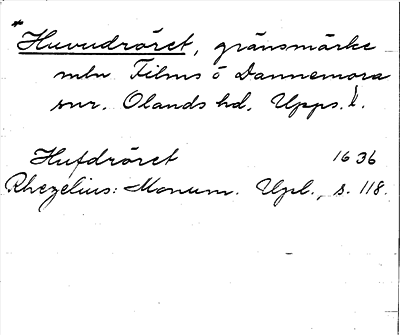 * Huvudröret, gränsmärke
mln Films o Dannemora
snr. Olands hd. Upps. l.
Hufdröret 1636
Rhezelius: Monum. Upl., s. 118.